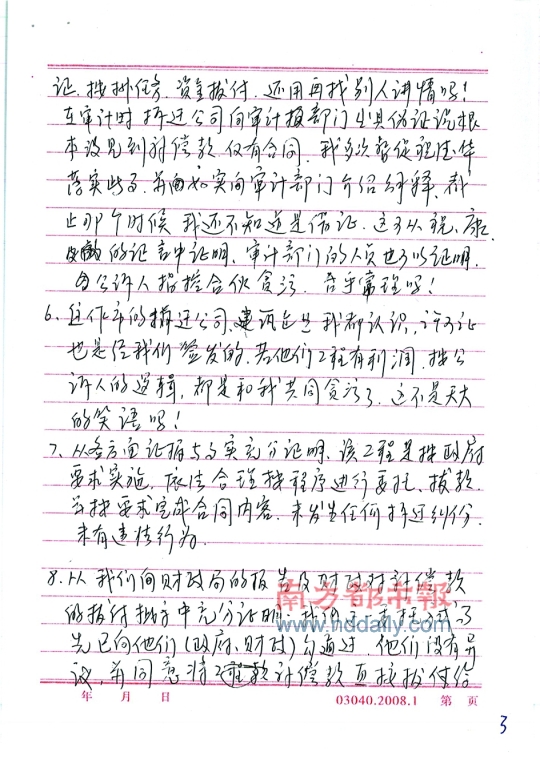 证、按排任务、资金拔付、还用再找别人讲情吗！
在审计时拆迁公司向审计报部门出具伪证说根
本没见到补偿款、仅有合同、我多次督促程连华
落实此事、并由如实向审计部门介绍解释、截
止那个时候我还不知道是伪证、这可从程、康、
的证言中证明、审计部门的人员也可以证明、
公诉人指控合伙贪污、合乎常理吗！
6、焦作市的拆迁公司、建筑企业我都认识、许可证
也是经我们签发的、若他们工程有利润、按公
诉人的逻辑、都是和我共同贪污了、这不是天大
的笑话吗！
7、从各方面证据与事实充分证明、该工程是按政府
要求实施、依法合理按程序进行委托、拔款、
并按要求完成合同内容、未发生任何拆迁纠纷、
未有违法行为、
8、从我们向财政局的报告及财政对补偿款
的拔付批文中充分证明、我们委托方式事
先已向他们（政府、财政）沟通过、他们没有异
议、并同意将工程款补偿款直接拔付给
南方都市報
www.nddaily.com
年 月 日 03040.2008.1 第 页
3